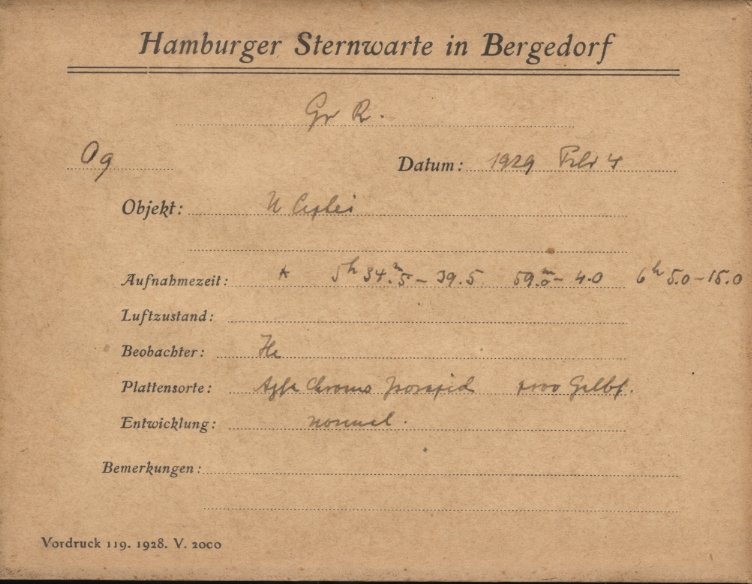 Hamburger Sternwarte in Bergedorf
Gr R.
Og
Datum: 1929 Febr 4
Objekt: U Cephei
Aufnahmezeit: 5h 34.m5 – 39.5 59.m0 – 4.0 6h 5.0 – 15.0
Luftzustand:
Beobachter:
Plattensorte: Agfa Chromo Isorapid Gelbf.
Entwicklung: normal.
Bemerkungen:
Vordruck 119. 1928. V. 2000